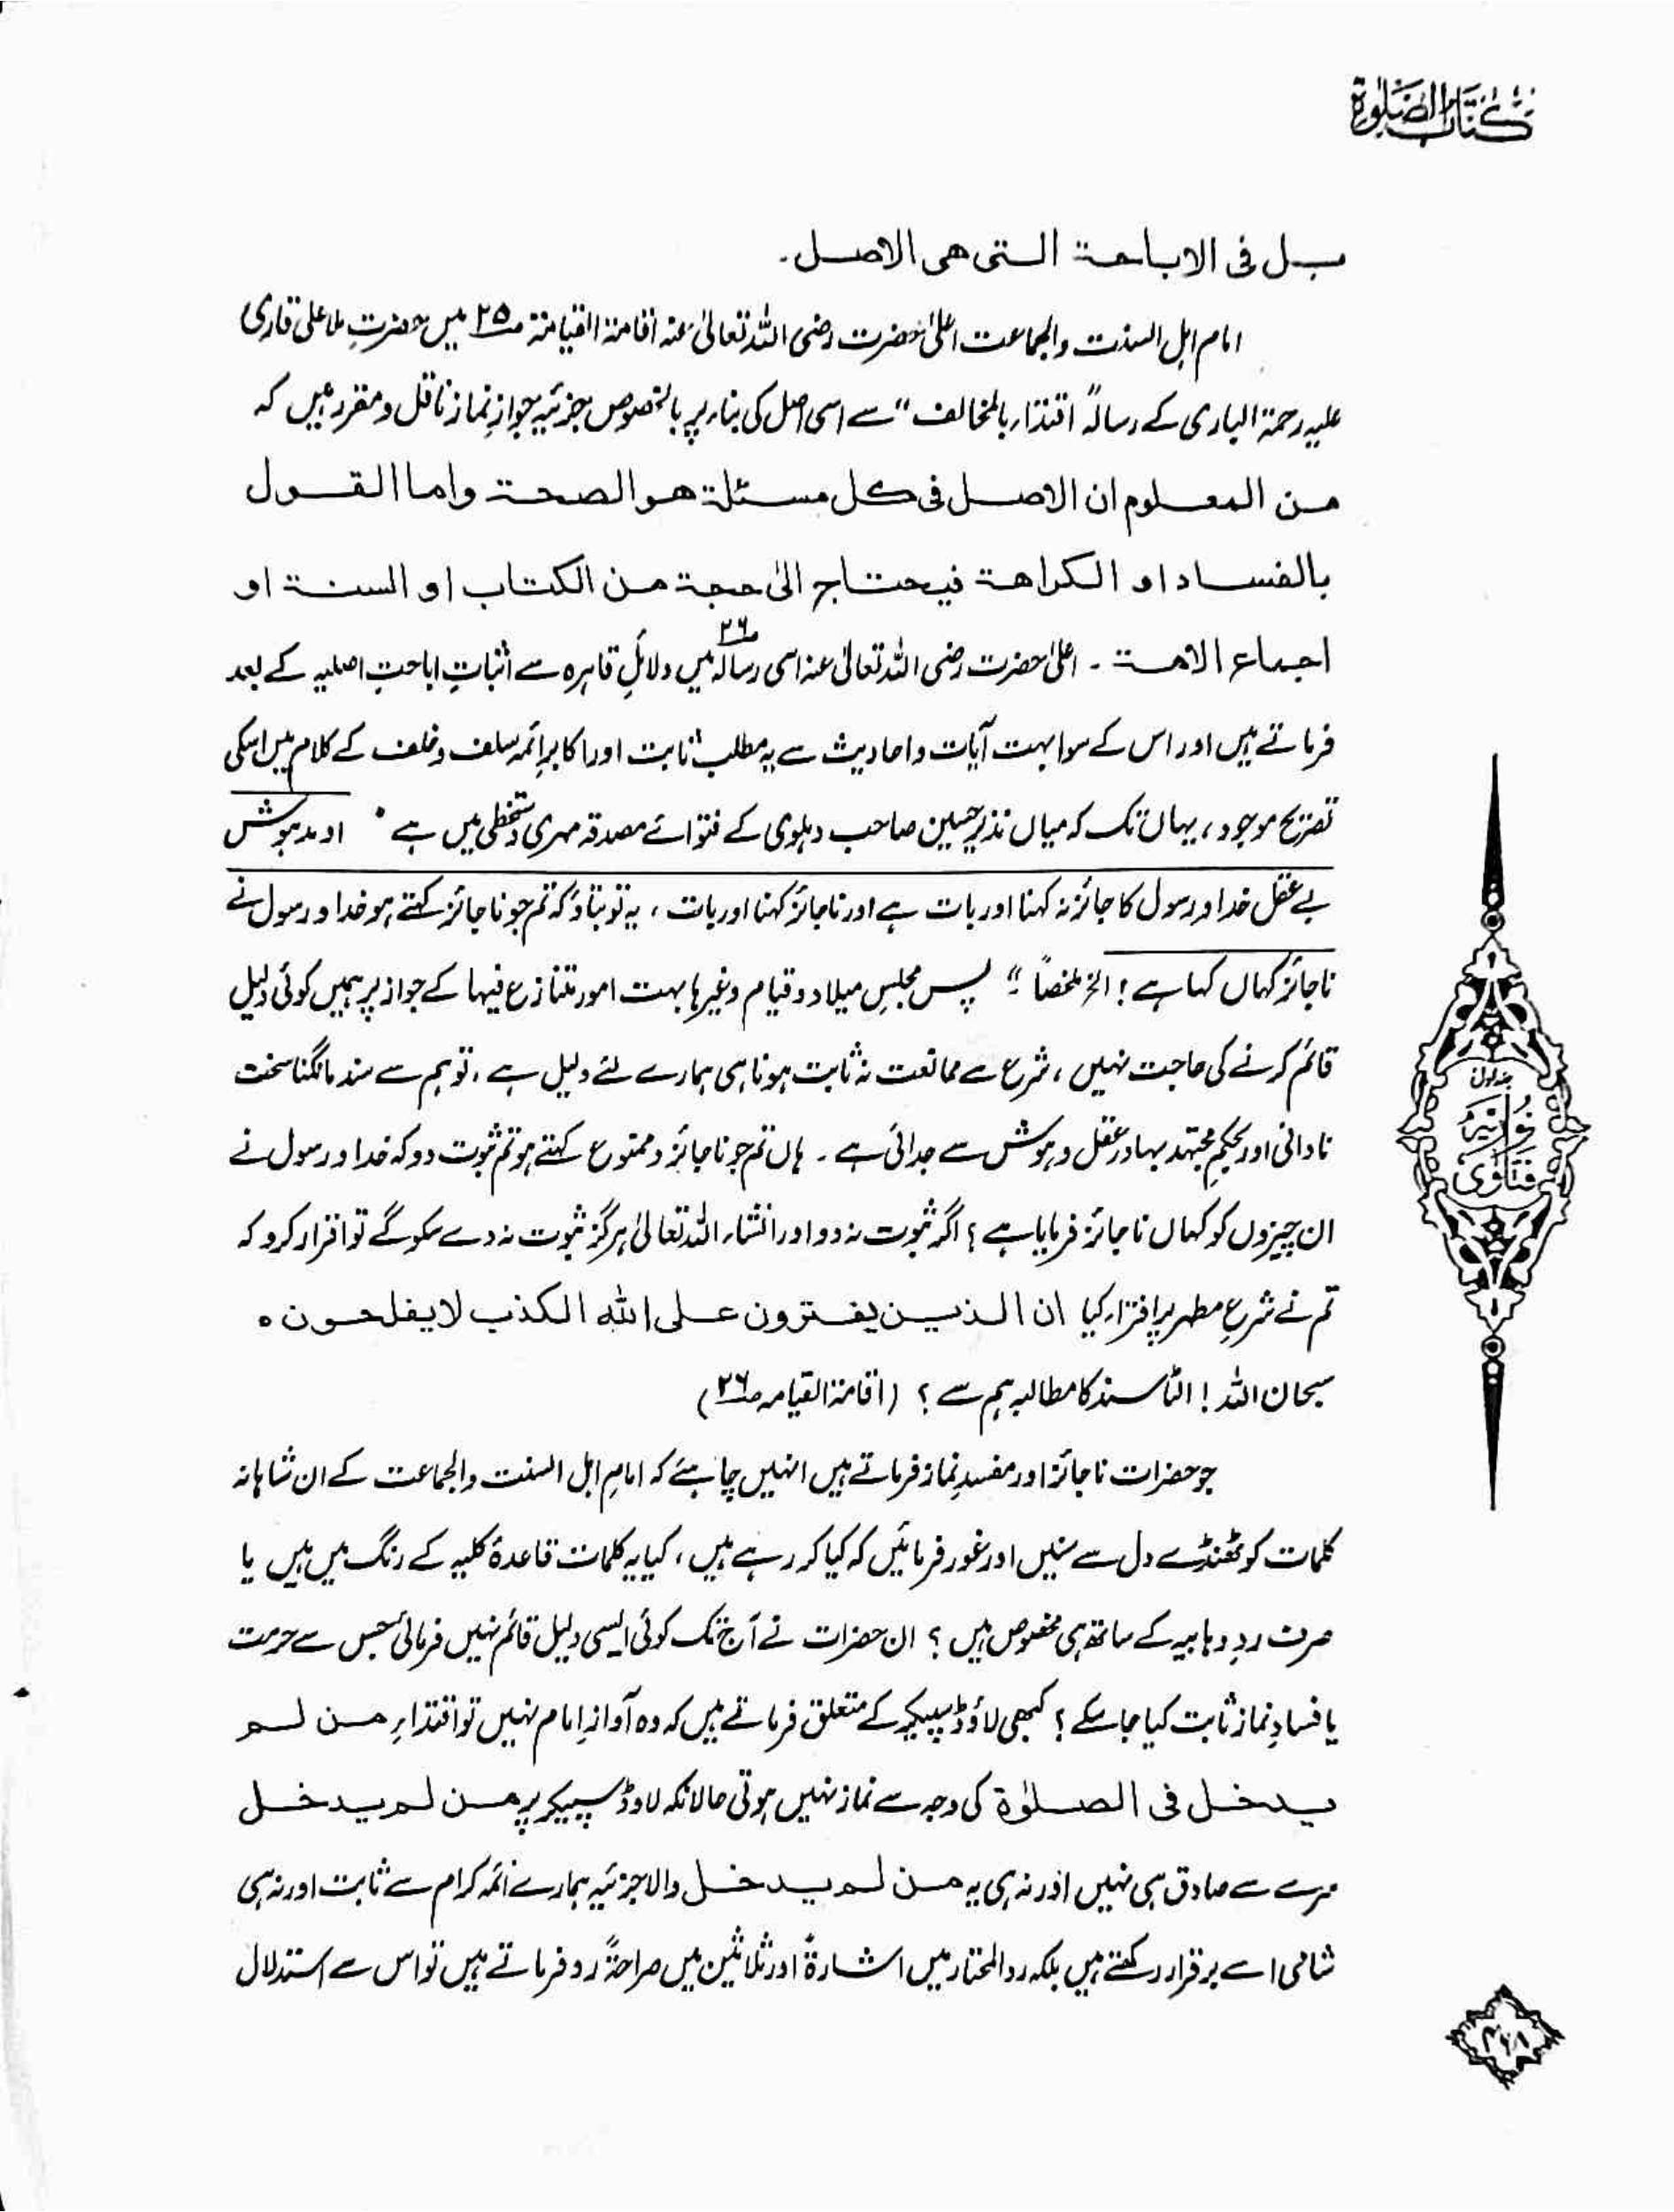 کتاب الصلوٰۃ
بل فی الاباحۃ التی ھی الاصل۔
امام اہل السنت والجماعت اعلیٰ حضرت رضی اللہ تعالیٰ عنہ اقامۃ القیامۃ ص۲۵ میں حضرتِ ملا علی قاری
علیہ رحمۃ الباری کے رسالہ "اقتداء بالمخالف" سے اسی اصل کی بناء پر بالخصوص جزئیہ جوازِ نماز ناقل و مقرر ہیں کہ
من المعلوم ان الاصل فی کل مسئلۃ ھو الصحۃ واما القول
بالفساد او الکراھۃ فیحتاج الیٰ حجۃ من الکتاب او السنۃ او
اجماع الامۃ ۔ اعلیٰ حضرت رضی اللہ تعالیٰ عنہ اسی رسالہ ص۲۶ میں دلائلِ قاہرہ سے اثباتِ اباحتِ اصلیہ کے بعد
فرماتے ہیں اور اس کے سوا بہت آیات و احادیث سے یہ مطلب ثابت اور اکابر ائمہ سلف و خلف کے کلام میں اسکی
تصریح موجود، یہاں تک کہ میاں نذیر حسین صاحب دہلوی کے فتوائے مصدقہ مہری دستخطی میں ہے " او مدہوش
بے عقل خدا و رسول کا جائز نہ کہنا اور بات ہے اور ناجائز کہنا اور بات، یہ تو بتاؤ کہ تم جو ناجائز کہتے ہو خدا و رسول نے
ناجائز کہاں کہا ہے؟ الخ ملخصاً " پس مجلسِ میلاد و قیام وغیرہا بہت امور متنازع فیہا کے جواز پر ہمیں کوئی دلیل
قائم کرنے کی حاجت نہیں، شرع سے ممانعت نہ ثابت ہونا ہی ہمارے لئے دلیل ہے، تو ہم سے سند مانگنا سخت
نادانی اور بحکمِ مجتہد بہادر عقل و ہوش سے جدائی ہے ۔ ہاں تم جو ناجائز و ممنوع کہتے ہو تم ثبوت دو کہ خدا و رسول نے
ان چیزوں کو کہاں ناجائز فرمایا ہے؟ اگر ثبوت نہ دو اور انشاء اللہ تعالیٰ ہرگز ثبوت نہ دے سکو گے تو اقرار کرو کہ
تم نے شرعِ مطہر پر افتراء کیا ان الذین یفترون علی اللہ الکذب لا یفلحون ہ
سبحان اللہ! الٹا سند کا مطالبہ ہم سے؟ (اقامۃ القیامہ ص۲۶)
جو حضرات ناجائز اور مفسدِ نماز فرماتے ہیں انہیں چاہئے کہ امامِ اہل السنت والجماعت کے ان شاہانہ
کلمات کو ٹھنڈے دل سے سنیں اور غور فرمائیں کہ کیا کر رہے ہیں، کیا یہ کلمات قاعدۂ کلیہ کے رنگ میں ہیں یا
صرف ردِ وہابیہ کے ساتھ ہی مخصوص ہیں؟ ان حضرات نے آج تک کوئی ایسی دلیل قائم نہیں فرمائی جس سے حرمت
یا فسادِ نماز ثابت کیا جا سکے؟ کبھی لاؤڈ سپیکر کے متعلق فرماتے ہیں کہ وہ آوازِ امام نہیں تو اقتداءِ من لم
یدخل فی الصلوٰۃ کی وجہ سے نماز نہیں ہوتی حالانکہ لاؤڈ سپیکر پر من لم یدخل
سرے سے صادق ہی نہیں اور نہ ہی یہ من لم یدخل والا جزئیہ ہمارے ائمہ کرام سے ثابت اور نہ ہی
شامی اسے برقرار رکھتے ہیں بلکہ ردالمحتار میں اشارۃً اور ثلاثین میں صراحۃً رد فرماتے ہیں تو اس سے استدلال
جلد اول
نوریہ
فتاویٰ
۳۶۸